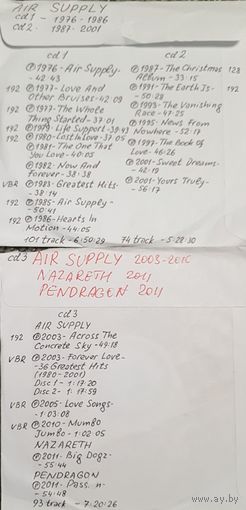 AIR SUPPLY
cd1 - 1976-1986
cd2 - 1987-2001
cd1
℗1976-Air Supply-
-42:43
192 ℗1977-Love And
Other Bruises-42:09
192 ℗1977-The Whole
Thing Started-37:01
192 ℗1979-Life Support-39:43
192 ℗1980-Lost In Love-37:05
℗1981-The One That
You Love-40:05
℗1982-Now And
Forever-38:38
VBR ℗1983-Greatest Hits-
-38:14
192 ℗1985-Air Supply-
-50:41
192 ℗1986-Hearts In
Motion-44:05
101 track-6:50:29
cd2
℗1987-The Christmas 128
Album-33:15
℗1991-The Earth Is- 192
-50:28
℗1993-The Vanishing
Race-47:25
℗1995-News From
Nowhere-52:17
℗1997-The Book of
Love-46:26
℗2001-Sweet Dreams-
-42:19
℗2001-Yours Truly-
-56:17
74 track-5:28:30
cd3 AIR SUPPLY 2003-2010
NAZARETH 2011
PENDRAGON 2011
cd3
AIR SUPPLY
192 ℗2003-Across The
Concrete Sky-49:18
VBR ℗2003-Forever Love-
-36 Greatest Hits
(1980-2001)
Disc 1-1:17:20
Disc 2-1:17:59
VBR ℗2005-Love Songs-
-1:03:08
VBR ℗2010-Mumbo
Jumbo-1:02:05
NAZARETH
℗2011-Big Dogz-
-55:44
PENDRAGON
℗2011-Pass. n-
-54:48
93 track-7:20:26
www.ay.by